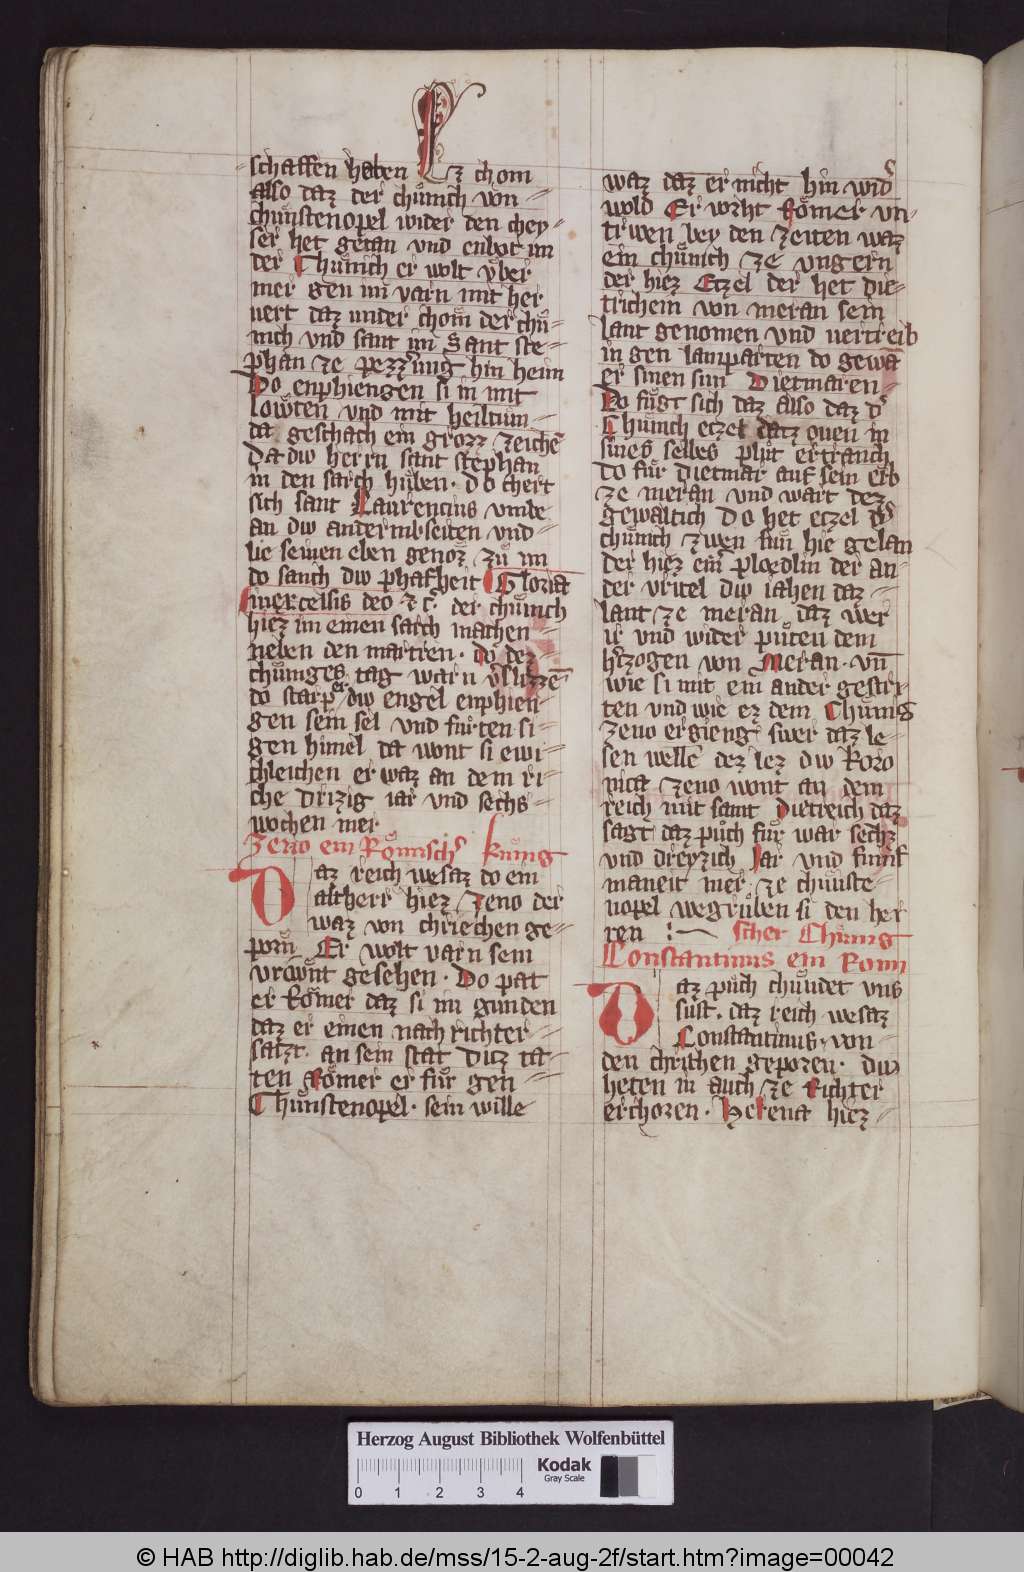 schaffen haben Ez chom
also daz der chuͤnich von
chuͤnstenopel wider den chey
ser het getan vnd enbot im
der Chuͤnich er wolt vͤber
mer gen im varn mit her
uert daz vnder chom der chuͤ
nich vnd sant im Sant ste
phan ze pezzrung hin heim
Do enphiengen si in mit
lowten vnd mit heiltuͤm
da geschach ein grozz zeichē
Da diw herrn sant stephan
in den sarch huͤben. do chert
sich sant Laurencius vmbe
an diw andernthseiten vnd
lie seinen eben genoz zuͦ im
do sanch diw phafheit Gloria
in excelsis deo ⁊ cͬ. der chuͤnich
hiez im einen sarch machen
neben den martren. do dez
chuͤniges tag warn v̓slizzē
do starp er diw engel enphien
gen sein sel vnd fuͤrten si
gen himel da wont si ewi
chleichen er waz an dem ri
che Drizig iar vnd sechs
wochen mer
Zeno ein Roͤmisch᾽ kuͤnig
Daz reich wesaz do ein
altherr hiez Zeno der
waz von chriechen ge
porn Er wolt varn sein
vrowͤnt gesehen. Do pat
er Roͤmer daz si im gunden
daz er einen nach richter
satzt. an sein stat Ditz ta
ten Roͤmer er fuͤr gen
Chuͤnstenopel. sein wille
waz daz er nicht hin wid᾽
wold Er vorht Roͤmer vn
trwen bey den zeiten waz
ein chuͤnich ze vngern
der hiez Etzel der het die
trichein von meran sein
lant genomen vnd uertreib
in gen lamparten do gewā
er sinen sun Dietmaren
Do fuͤgt sich daz also daz d᾽
Chuͤnich etzel datz ouen in
sines selbes pluͤt ertranch
Do fuͤr Dietmar auf sein erb
ze meran vnd wart dez
gewaltich Do het etzel d᾽
chuͤnich zwen sun hie gelan
der hiez einr ploedlin der an
der vritel diw iahen daz
lant ze meran daz wer
ir vnd wider puͤten dem
h᾽zogen von Meran. vn̄
wie si mit ein ander gestri
ten vnd wie ez dem Chuͤnig
zeno ergieng swer daz le
sen welle dez lez diw koro
nica Zeno wont an dem
reich mit samt Dietreich daz
sagt daz puͦch fuͤr war sechz
vnd dreyzich Jar vnd fumf
maneit mer ze chuͤnste
nopel wegruͦben si den her
ren scher Chuͤnig
Constantinus ein Romi
Daz puͦch chuͤndet vns
sust. daz reich wesaz
Constantinus von
den chrichen geporen. diw
heten in auch ze Richter
erchozen. Helena hiez
Herzog August Bibliothek Wolfenbüttel
0 1 2 3 4
Kodak
Gray Scale
© HAB http://diglib.hab.de/mss/15-2-aug-2f/start.htm?image=00042